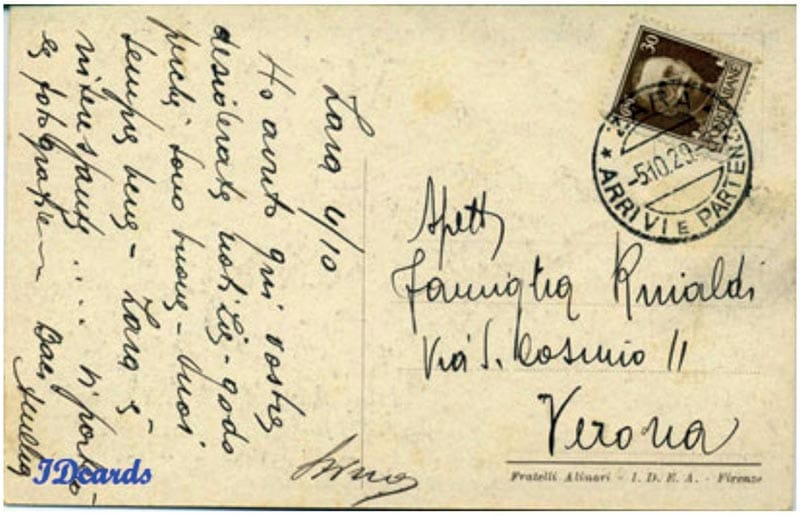 Zara 4/10
Ho avuto qui vostre
desiderate notizie - godo
perchè sono buone - Noi
sempre bene - Zara è
interessante .... vi porterò
le fotografie
Baci
30
ZARA
-5.10.29
* ARRIVI E PARTENZE
Spett
Famiglia Rinaldi
Via S. Cosimo 11
Verona
Fratelli Alinari - I. D. E. A. - Firenze
JDcards